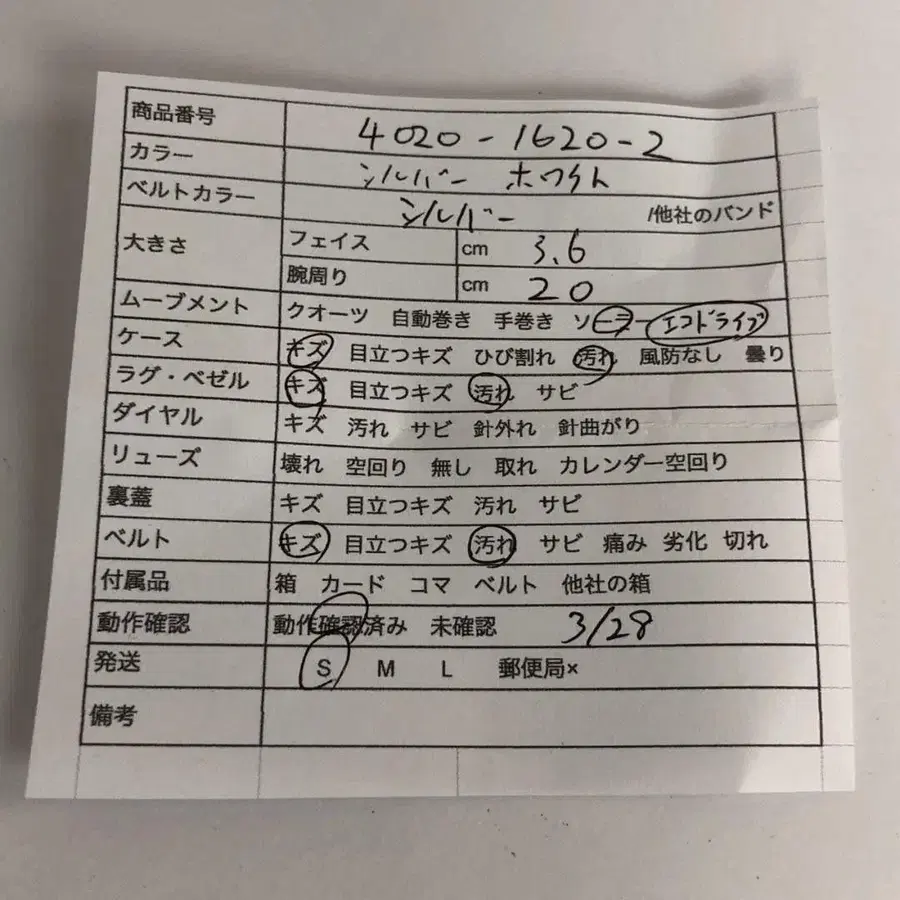 商品番号 4020-1620-2
カラー シルバー ホワイト
ベルトカラー シルバー /他社のバンド
大きさ フェイス cm 3.6
腕周り cm 20
ムーブメント クオーツ 自動巻き 手巻き ソーラー エコドライブ
ケース キズ 目立つキズ ひび割れ 汚れ 風防なし 曇り
ラグ・ベゼル キズ 目立つキズ 汚れ サビ
ダイヤル キズ 汚れ サビ 針外れ 針曲がり
リューズ 壊れ 空回り 無し 取れ カレンダー空回り
裏蓋 キズ 目立つキズ 汚れ サビ
ベルト キズ 目立つキズ 汚れ サビ 痛み 劣化 切れ
付属品 箱 カード コマ ベルト 他社の箱
動作確認 動作確認済み 未確認 3/28
発送 S M L 郵便局×
備考